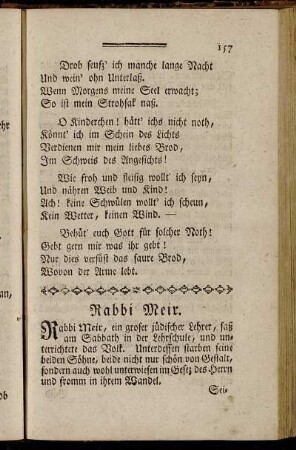 157
Drob seufz' ich manche lange Nacht
Und wein' ohn Unterlaß.
Wenn Morgens meine Seel erwacht;
So ist mein Strohsak naß.
O Kinderchen! hätt' ichs nicht noth,
Könnt' ich im Schein des Lichts
Verdienen mir mein liebes Brod,
Im Schweis des Angesichts!
Wie froh und fleisig wollt' ich seyn,
Und nähren Weib und Kind!
Ach! keine Schwülen wollt' ich scheun,
Kein Wetter, keinen Wind. —
Behüt' euch Gott für solcher Noth!
Gebt gern mir was ihr gebt!
Nur dies versüst das saure Brod,
Wovon der Arme lebt.
Rabbi Meir.
Rabbi Meir, ein groser jüdischer Lehrer, saß
am Sabbath in der Lehrschule, und un-
terrichtete das Volk. Unterdessen starben seine
beiden Söhne, beide nicht nur schön von Gestalt,
sondern auch wohl unterwiesen im Gesez des Herrn
und fromm in ihrem Wandel.
Sei-